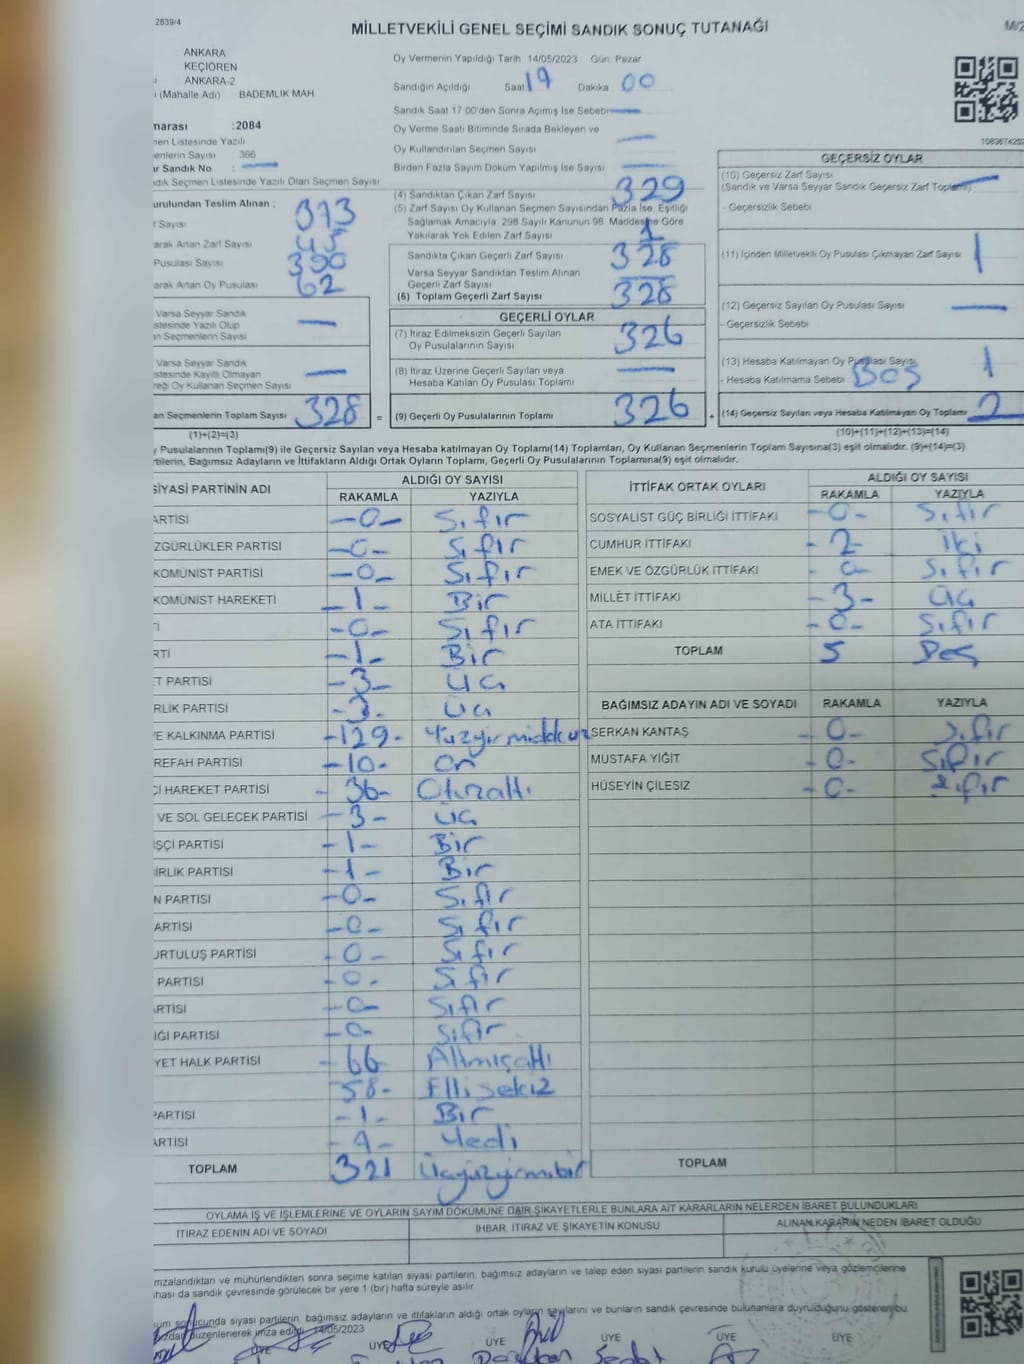 2839/4
MİLLETVEKİLİ GENEL SEÇİMİ SANDIK SONUÇ TUTANAĞI
M/2
ANKARA
KEÇİÖREN
ANKARA-2
(Mahalle Adı) BADEMLİK MAH
Oy Vermenin Yapıldığı Tarih 14/05/2023 Gün: Pazar
Sandığın Açıldığı Saat 17 Dakika : 00
Sandık Saat 17.00'den Sonra Açılmış İse Sebebi —
Oy Verme Saati Bitiminde Sırada Bekleyen ve
Oy Kullandırılan Seçmen Sayısı —
Birden Fazla Sayım Döküm Yapılmış İse Sayısı —
marası :2084
men Listesinde Yazılı
enlerin Sayısı : 366
ır Sandık No : —
dık Seçmen Listesinde Yazılı Olan Seçmen Sayısı
urulundan Teslim Alınan :
f Sayısı 373
arak Artan Zarf Sayısı 45
Pusulası Sayısı 390
arak Artan Oy Pusulası 62
Varsa Seyyar Sandık
stesinde Yazılı Olup
n Seçmenlerin Sayısı —
Varsa Seyyar Sandık
stesinde Kayıtlı Olmayan
reği Oy Kullanan Seçmen Sayısı —
an Seçmenlerin Toplam Sayısı 328 =
(1)+(2)=(3)
(4) Sandıktan Çıkan Zarf Sayısı 329
(5) Zarf Sayısı Oy Kullanan Seçmen Sayısından Fazla İse, Eşitliği
Sağlamak Amacıyla, 298 Sayılı Kanunun 98. Maddesine Göre
Yakılarak Yok Edilen Zarf Sayısı 1
Sandıkta Çıkan Geçerli Zarf Sayısı 328
Varsa Seyyar Sandıktan Teslim Alınan
Geçerli Zarf Sayısı —
(6) Toplam Geçerli Zarf Sayısı 328
GEÇERLİ OYLAR
(7) İtiraz Edilmeksizin Geçerli Sayılan
Oy Pusulalarının Sayısı 326
(8) İtiraz Üzerine Geçerli Sayılan veya
Hesaba Katılan Oy Pusulası Toplamı —
(9) Geçerli Oy Pusulalarının Toplamı 326 +
GEÇERSİZ OYLAR
(10) Geçersiz Zarf Sayısı
(Sandık ve Varsa Seyyar Sandık Geçersiz Zarf Toplamı) —
- Geçersizlik Sebebi
(11) İçinden Milletvekili Oy Pusulası Çıkmayan Zarf Sayısı 1
(12) Geçersiz Sayılan Oy Pusulası Sayısı —
- Geçersizlik Sebebi
(13) Hesaba Katılmayan Oy Pusulası Sayısı 1
- Hesaba Katılmama Sebebi BOŞ
(14) Geçersiz Sayılan veya Hesaba Katılmayan Oy Toplamı 2
(10)+(11)+(12)+(13)=(14)
y Pusulalarının Toplamı(9) ile Geçersiz Sayılan veya Hesaba katılmayan Oy Toplamı(14) Toplamları, Oy Kullanan Seçmenlerin Toplam Sayısına(3) eşit olmalıdır. (9)+(14)=(3)
rtilerin, Bağımsız Adayların ve İttifakların Aldığı Ortak Oyların Toplamı, Geçerli Oy Pusulalarının Toplamına(9) eşit olmalıdır.
SİYASİ PARTİNİN ADI ALDIĞI OY SAYISI
RAKAMLA YAZIYLA
ARTİSİ -0- Sıfır
ZGÜRLÜKLER PARTİSİ -0- Sıfır
KOMÜNİST PARTİSİ -0- Sıfır
KOMÜNİST HAREKETİ -1- Bir
İ -0- Sıfır
RTİ -1- Bir
T PARTİSİ -3- Üç
RLİK PARTİSİ -3- Üç
E KALKINMA PARTİSİ -129-
REFAH PARTİSİ -10- On
Çİ HAREKET PARTİSİ - 36- Otuzaltı
VE SOL GELECEK PARTİSİ -3- Üç
İŞÇİ PARTİSİ -1- Bir
BİRLİK PARTİSİ -1- Bir
N PARTİSİ -0- Sıfır
ARTİSİ -0- Sıfır
URTULUŞ PARTİSİ -0- Sıfır
PARTİSİ -0- Sıfır
ARTİSİ -0- Sıfır
IĞI PARTİSİ -0- Sıfır
YET HALK PARTİSİ -66 Altmışaltı
58- Ellisekiz
PARTİSİ -1- Bir
ARTİSİ -7- Yedi
TOPLAM 321 Üçyüzyirmibir
İTTİFAK ORTAK OYLARI ALDIĞI OY SAYISI
RAKAMLA YAZIYLA
SOSYALİST GÜÇ BİRLİĞİ İTTİFAKI -0- Sıfır
CUMHUR İTTİFAKI -2- İki
EMEK VE ÖZGÜRLÜK İTTİFAKI -0- Sıfır
MİLLET İTTİFAKI -3- Üç
ATA İTTİFAKI -0- Sıfır
TOPLAM 5 Beş
BAĞIMSIZ ADAYIN ADI VE SOYADI RAKAMLA YAZIYLA
SERKAN KANTAŞ -0- Sıfır
MUSTAFA YİĞİT -0- Sıfır
HÜSEYİN ÇİLESİZ -0- Sıfır
TOPLAM
OYLAMA İŞ VE İŞLEMLERİNE VE OYLARIN SAYIM DÖKÜMÜNE DAİR ŞİKAYETLERLE BUNLARA AİT KARARLARIN NELERDEN İBARET BULUNDUKLARI
İTİRAZ EDENİN ADI VE SOYADI İHBAR, İTİRAZ VE ŞİKAYETİN KONUSU ALINAN KARARIN NEDEN İBARET OLDUĞU
mzalandıktan ve mühürlendikten sonra seçime katılan siyasi partilerin, bağımsız adayların ve talep eden siyasi partilerin sandık kurulu üyelerine veya gözlemcilerine
ihası da sandık çevresinde görülecek bir yere 1 (bir) hafta süreyle asılır
üm sonucunda siyasi partilerin, bağımsız adayların ve ittifakların aldığı ortak oyların sayılarını ve bunların sandık çevresinde bulunanlara duyrulduğunu gösteren bu
düzenlenerek imza edildi. 14/05/2023
ÜYE ÜYE ÜYE ÜYE ÜYE ÜYE